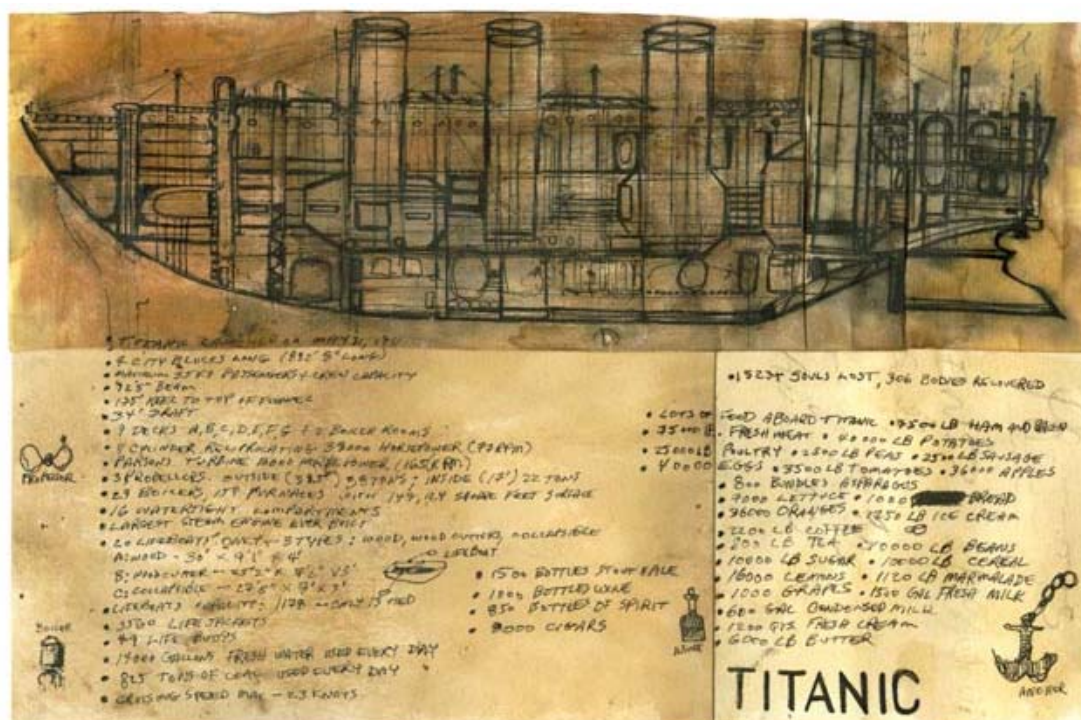 • TITANIC LAUNCHED ON MAY 31, 1911
• 4 CITY BLOCKS LONG (882' 8" LONG)
• MAXIMUM 3547 PASSENGERS + CREW CAPACITY
• 92'5" BEAM
• 175' KEEL TO TOP OF FUNNEL
• 34' DRAFT
• 9 DECKS A, B, C, D, E, F, G + 2 BOILER ROOMS
CYLINDER RECIPROCATING HORSEPOWER
• PARSONS TURBINE HORSEPOWER (165 RPM)
• 3 PROPELLERS. OUTSIDE 38 TONS; INSIDE (17') 22 TONS
• 29 BOILERS, 159 FURNACES, WITH SQUARE FEET SURFACE
• 16 WATERTIGHT COMPARTMENTS
• LARGEST STEAM ENGINE EVER BUILT
• 20 LIFEBOATS ONLY - 3 TYPES: WOOD, WOOD CUTTERS, COLLAPSIBLE
A: WOOD - 30' X 9'1" X 4'
B: WOOD CUTTER - 25'2" X
C: COLLAPSIBLE - 27'5" X
• LIFEBOATS CAPACITY: 1178 -
• 3560 LIFE JACKETS
• 49 LIFE BUOYS
• 14000 GALLONS FRESH WATER USED EVERY DAY
• 825 TONS OF COAL USED EVERY DAY
• CRUISING SPEED MAX - 23 KNOTS
PROPELLOR
BOILER
LIFEBOAT
• 1500 BOTTLES STOUT + ALE
• 1000 BOTTLES WINE
• 850 BOTTLES OF SPIRIT
• 8000 CIGARS
WINE
• 1523+ SOULS LOST, 306 BODIES RECOVERED
• LOTS OF FOOD ABOARD TITANIC • 7500 LB HAM AND BACON
• 75000 LB. FRESH MEAT • 40000 LB POTATOES
• 25000 LB POULTRY • 2500 LB PEAS • 2500 LB SAUSAGE
• 40000 EGGS • 3500 LB TOMATOES • 36000 APPLES
• 800 BUNDLES ASPARAGUS
• 7000 LETTUCE • 1000 BREAD
• 36000 ORANGES • 1750 LB ICE CREAM
• 2200 LB COFFEE
• 800 LB TEA • 10000 LB BEANS
• 10000 LB SUGAR • 10000 LB CEREAL
• 16000 LEMONS • 1120 LB MARMALADE
• 1000 GRAPES • 1500 GAL FRESH MILK
• 600 GAL CONDENSED MILK
• 1200 QTS FRESH CREAM
• 6000 LB BUTTER
ANCHOR
TITANIC